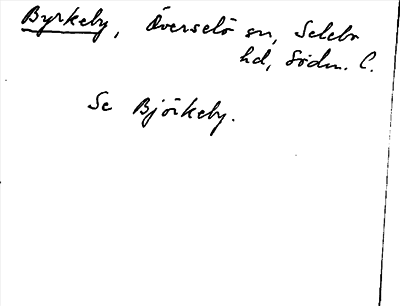 Byrkeby, Överselö sn, Selebo
hd, Södm. C.
Se Björkeby.